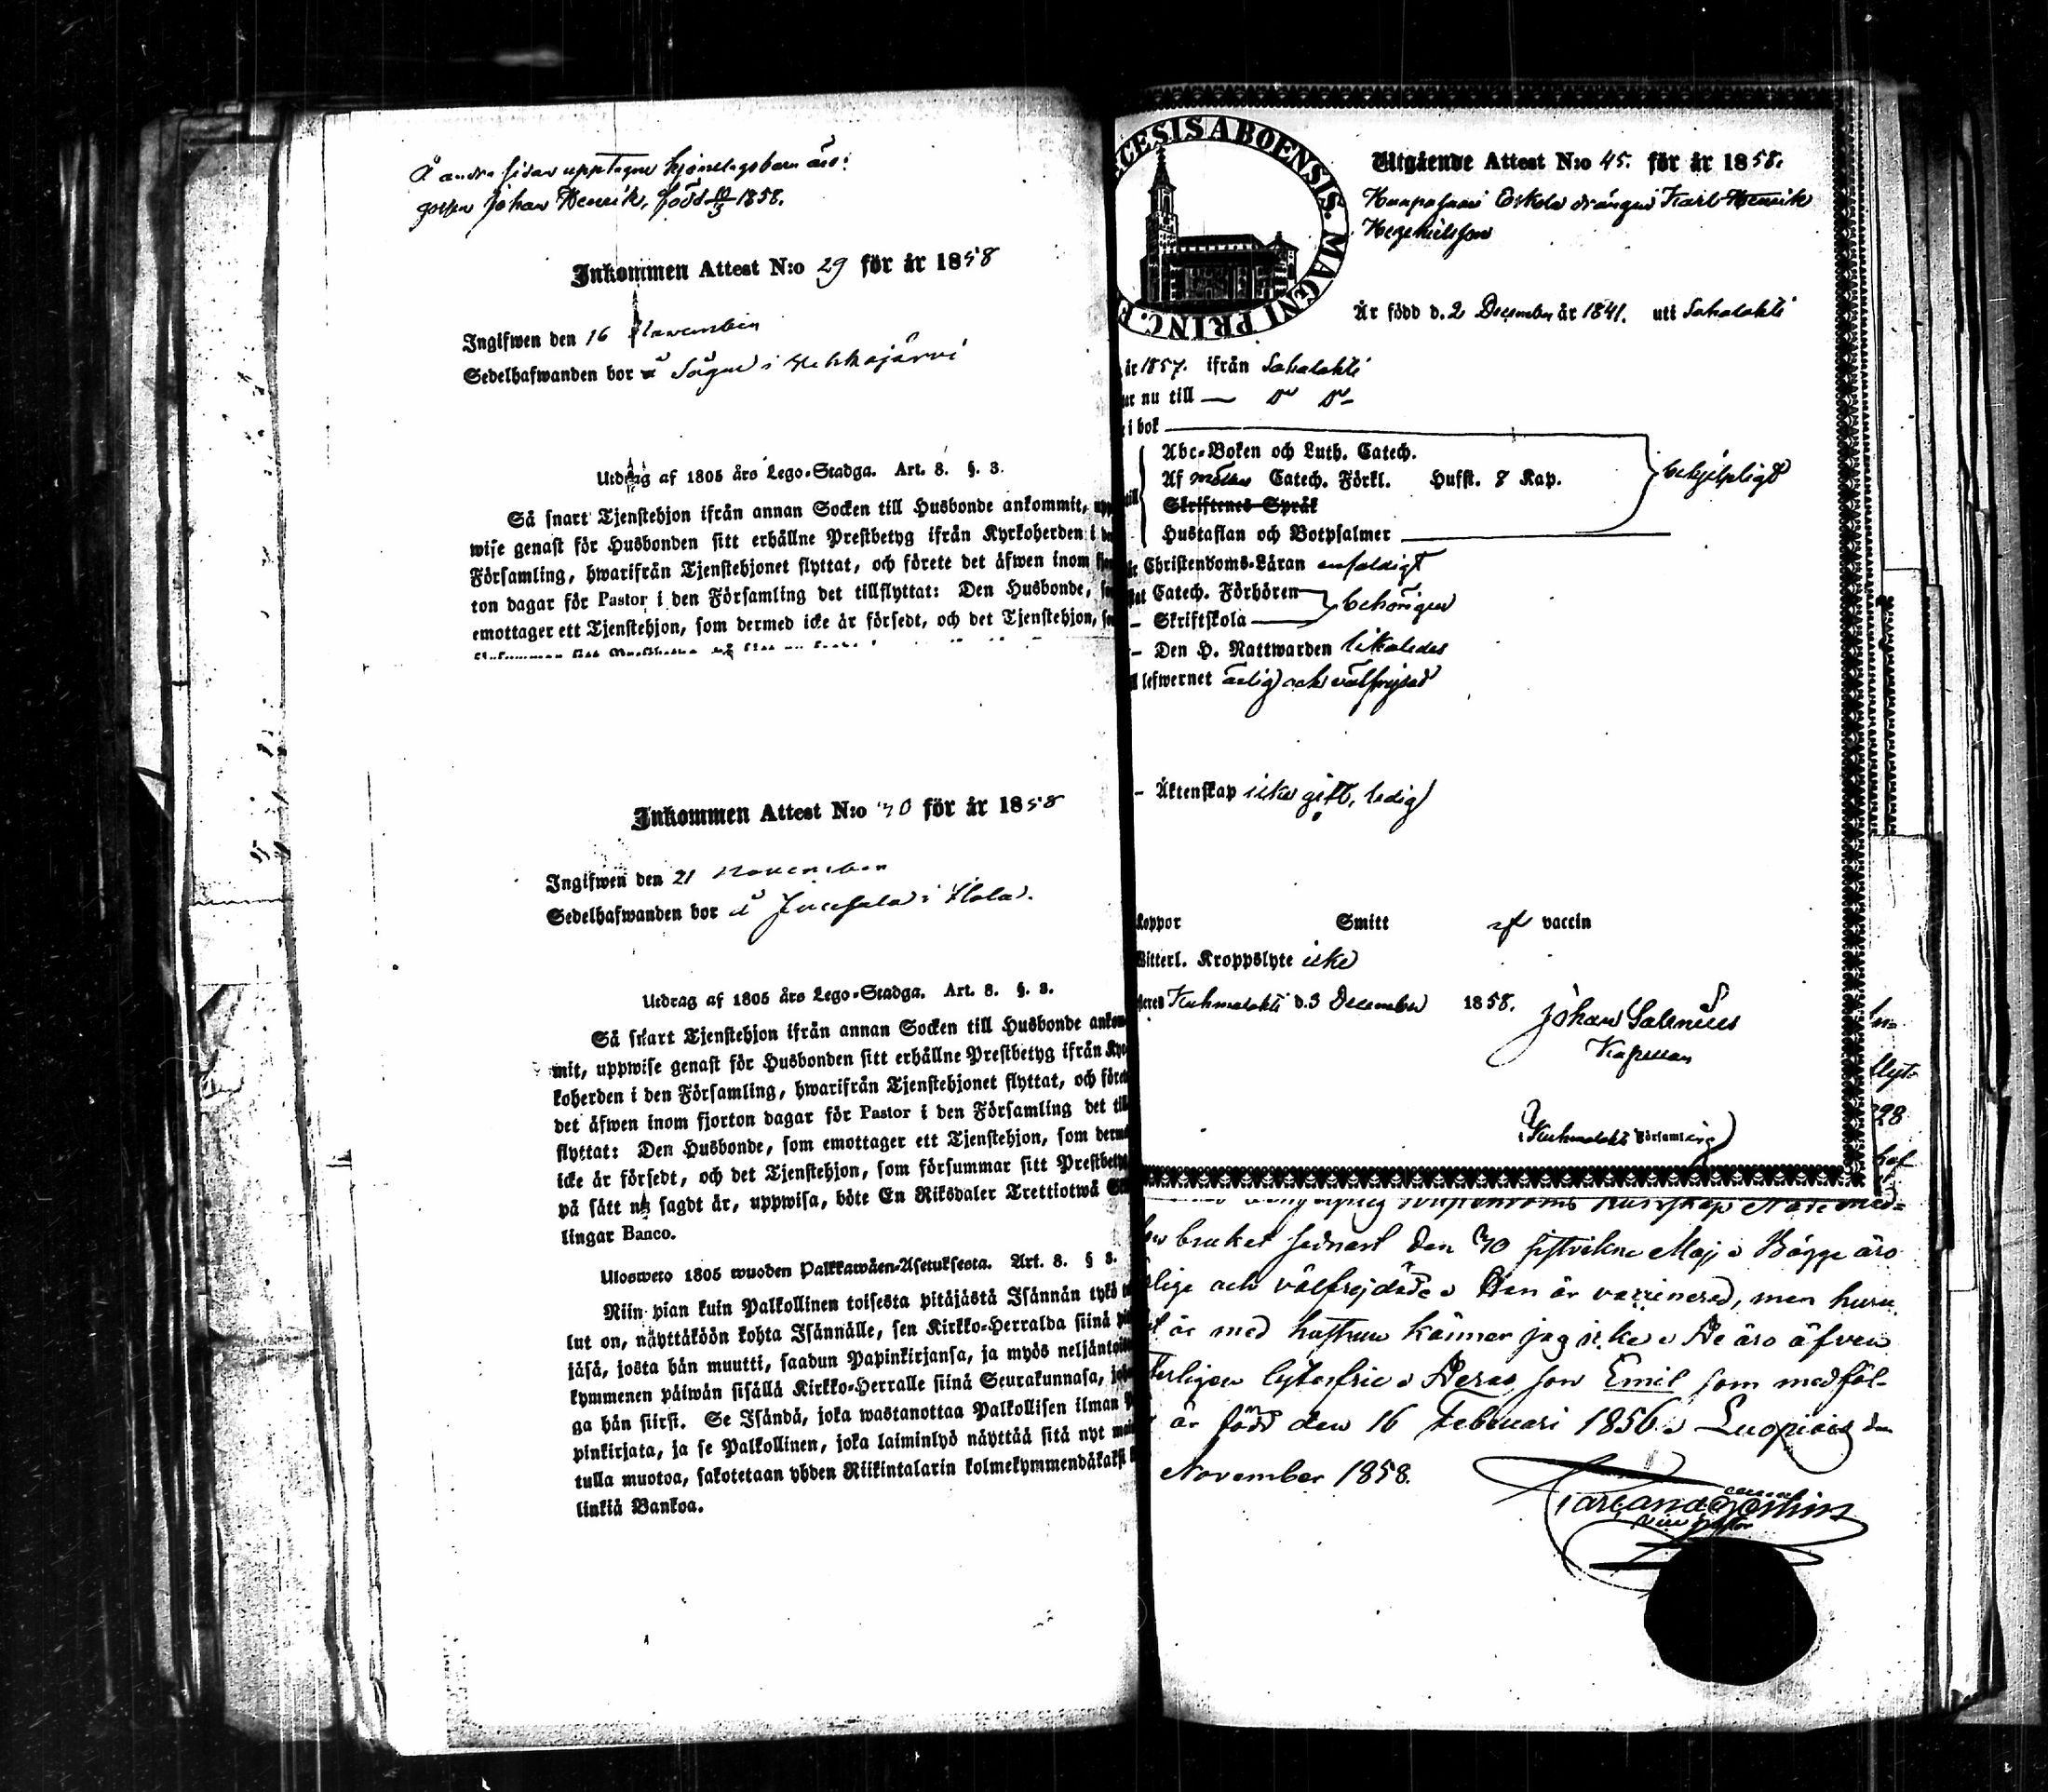 Å andra sidan upptagne hjonelagsbarn äro:
gossen Johan Henrik, född 10/3 1858.
Inkommen Attest N:o 29 för år 1858
Ingifwen den 16 November
Sedelhafwanden bor å Sågen i
Utdrag af 1805 års Lego-Stadga. Art. 8. §. 3.
Så snart Tjenstehjon ifrån annan Socken till Husbonde ankommit, upp
wise genast för Husbonden sitt erhållne Prestbetyg ifrån Kyrkoherden i de
Församling, hwarifrån Tjenstehjonet flyttat, och förete det äfwen inom fjor
ton dagar för Pastor i den Församling det tillflyttat: Den Husbonde, so
emottager ett Tjenstehjon, som dermed icke är försedt, och det Tjenstehjon, so
Inkommen Attest N:o 30 för år 1858
Ingifwen den 21 November
Sedelhafwanden bor å i
Utdrag af 1805 års Lego-Stadga. Art. 8. §. 3.
Så snart Tjenstehjon ifrån annan Socken till Husbonde ankom
mit, uppwise genast för Husbonden sitt erhållne Prestbetyg ifrån Kyr
koherden i den Församling, hwarifrån Tjenstehjonet flyttat, och förete
det äfwen inom fjorton dagar för Pastor i den Församling det till
flyttat: Den Husbonde, som emottager ett Tjenstehjon, som derme
icke är försedt, och det Tjenstehjon, som försummar sitt Prestbetyg
på sätt nu sagdt är, uppwisa, böte En Riksdaler Trettiotwå
lingar Banco.
Ulosweto 1805 wuoden Palkkawäen-Asetuksesta. Art. 8. § 3.
Niin pian kuin Palkollinen toisesta pitäjästä Isännän tykö
lut on, näyttäköön kohta Isännälle, sen Kirkko-Herralda siinä
jäsä, josta hän muutti, saadun Papinkirjansa, ja myös neljäntoista
kymmenen päiwän sisällä Kirkko-Herralle siinä Seurakunnasa,
ga hän siirst. Se Isändä, joka wastanottaa Palkollisen ilman
pinkirjata, ja se Palkollinen, joka laiminlyö näyttää sitä nyt
tulla muotoa, sakotetaan yhden Riikintalarin kolmekymmendäkaksi
linkiä Bankoa.
CESIS ABOENSIS. MAGNI PRINC. F
Utgående Attest N:o 45. för år 1858.
Eskola drängen Karl Henrik
Är född d. 2 December år 1841. uti Sahalahti
år 1857. ifrån Sahalahti
nu till — Do Do
i bok
Abc-Boken och Luth. Catech.
Af Catech. Förkl. Hufst. 8 Kap.
Skriftenes Språk
Hustaflan och Botpsalmer
behjelpligt
Christendoms-Läran enfaldigt
Catech. Förhören
behörigen
– Skriftskola
– Den H. Nattwarden likaledes
lefwernet ärlig och välfrejdad
– Äktenskap icke gift, ledig
koppor Smitt af vaccin
Witterl. Kroppslyte icke
Kuhmalahti d. 3 December 1858.
Johan Salenius
Kapellan
Kuhmalahti Församling
bruket sednast den 30 sistvikne Maj. Bägge äro
lige och välfrejdade. Han är vaccinerad, men huru
är med hustrun känner jag icke. De äro äfven
terligen lytesfrie. Deras son Emil som medföl-
är född den 16 Februari 1856. Luopiois den
November 1858.